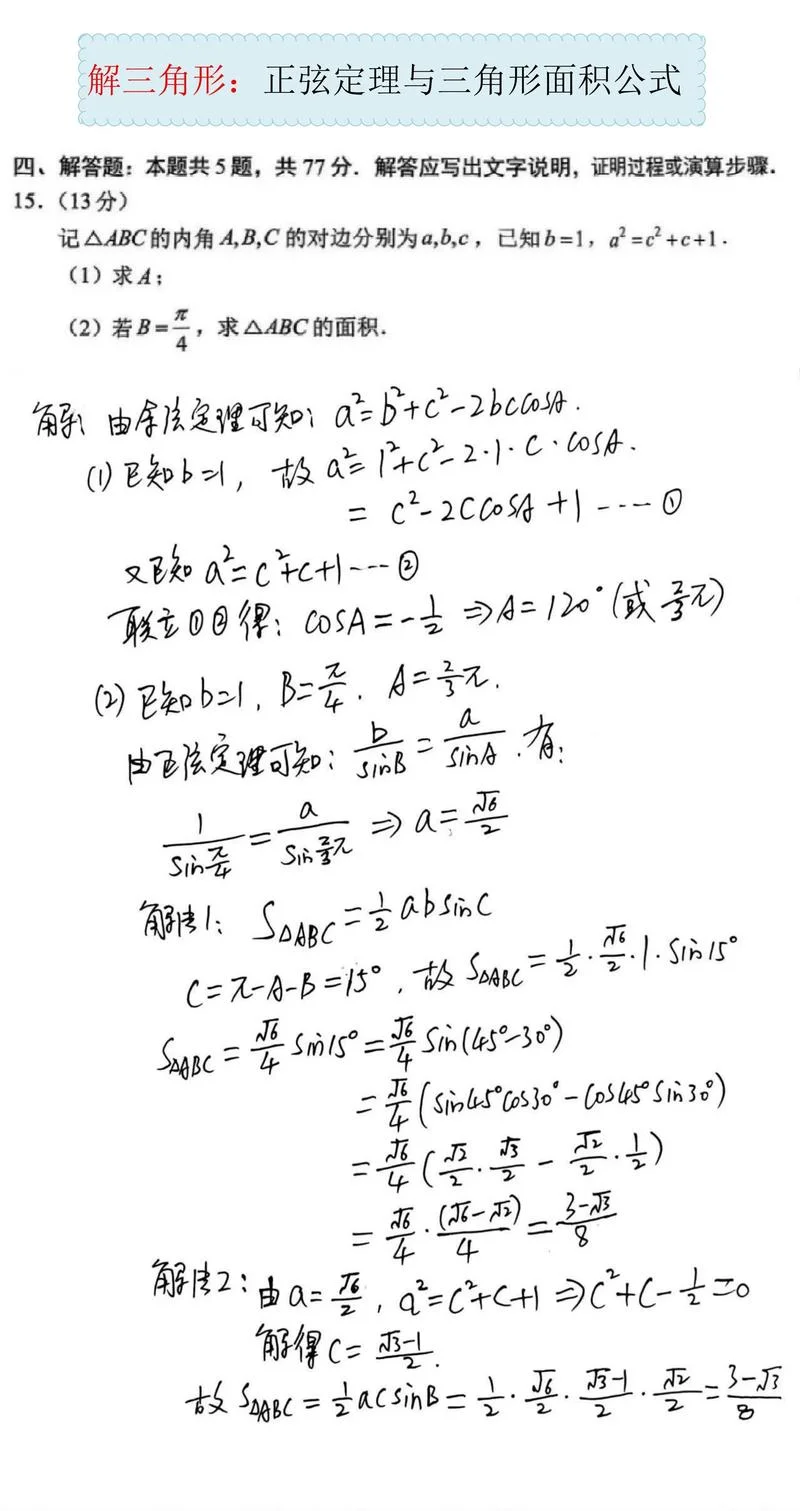 解三角形：正弦定理与三角形面积公式
四、解答题：本题共5题，共77分．解答应写出文字说明，证明过程或演算步骤．
15.（13分）
记△ABC的内角A,B,C的对边分别为a,b,c，已知b=1，a²=c²+c+1．
（1）求A；
（2）若B=π/4，求△ABC的面积．
解：由余弦定理可知：a²=b²+c²-2bccosA.
(1) 已知b=1，故a²=1²+c²-2·1·c·cosA.
=c²-2ccosA+1 ---- ①
又已知 a²=c²+c+1 --- ②
联立①②得：cosA=-1/2 ⇒A=120°(或 2/3π)
(2) 已知b=1，B=π/4，A=2/3π.
由正弦定理可知：b/sinB=a/sinA，有：
1/sinπ/4=a/sin2/3π ⇒ a=√6/2
解法1：S△ABC=1/2absinC
C=π-A-B=15°，故S△ABC=1/2·√6/2·1·sin15°
S△ABC=√6/4sin15°=√6/4sin(45°-30°)
=√6/4(sin45°cos30°-cos45°sin30°)
=√6/4(√2/2·√3/2-√2/2·1/2)
=√6/4·(√6-√2)/4=3-√3/8
解法2：由a=√6/2，a²=c²+c+1⇒c²+c-1/2=0
解得c=√3-1/2.
故S△ABC=1/2acsinB=1/2·√6/2·√3-1/2·√2/2=3-√3/8